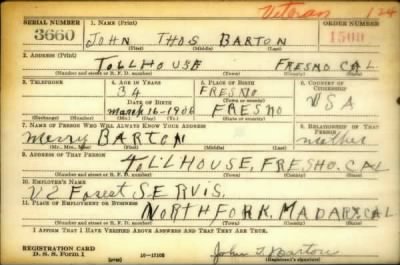 Veteran 124
SERIAL NUMBER 1. NAME (Print) ORDER NUMBER
3660 JOHN THOS BARTON 1500
(First) (Middle) (Last)
2. ADDRESS (Print)
TOLLHOUSE FRESNO CAL
(Number and street or R. F. D. number) (Town) (County) (State)
3. TELEPHONE 4. AGE IN YEARS 5. PLACE OF BIRTH 6. COUNTRY OF CITIZENSHIP
34 FRESNO
DATE OF BIRTH (Town or county) USA
March 16-1906 FRESNO
(Exchange) (Number) (Mo.) (Day) (Yr.) (State or country)
7. NAME OF PERSON WHO WILL ALWAYS KNOW YOUR ADDRESS 8. RELATIONSHIP OF THAT PERSON
Mary BARTON mother
(Mr., Mrs., Miss) (First) (Middle) (Last)
9. ADDRESS OF THAT PERSON
TOLLHOUSE, FRESNO. CAL
(Number and street or R. F. D. number) (Town) (County) (State)
10. EMPLOYER'S NAME
Forest SERVIS.
11. PLACE OF EMPLOYMENT OR BUSINESS
NORTHFORK. MADARY. CAL
(Number and street or R. F. D. number) (Town) (County) (State)
I AFFIRM THAT I HAVE VERIFIED ABOVE ANSWERS AND THAT THEY ARE TRUE.
REGISTRATION CARD
D. S. S. Form 1 16-17105 John T. Barton
(Registrant's signature)